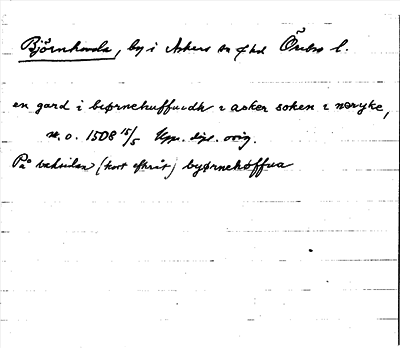 Björnhovda, by i Askers sn o hd Örebro l.
en gard i biørnehuffuidh i asker soken i neryke,
n. o. 1508 15/5 Upps. dipl. orig.
På baksidan (kort efteråt) byørnehoffua